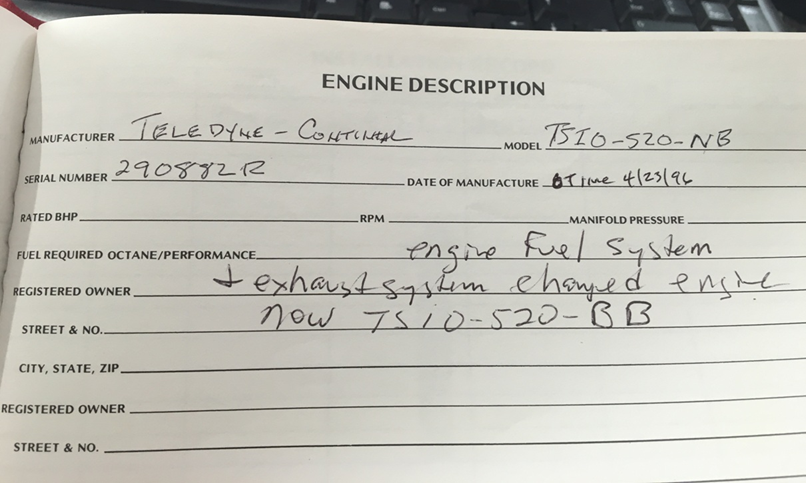 ENGINE DESCRIPTION
MANUFACTURER TELEDYNE - CONTINENTAL MODEL TSIO-520-NB
SERIAL NUMBER 290882R DATE OF MANUFACTURE 0 Time 4/23/96
RATED BHP RPM MANIFOLD PRESSURE
FUEL REQUIRED OCTANE/PERFORMANCE engine Fuel System
REGISTERED OWNER + exhaust system changed engine
STREET & NO. now TSIO-520-BB
CITY, STATE, ZIP
REGISTERED OWNER
STREET & NO.